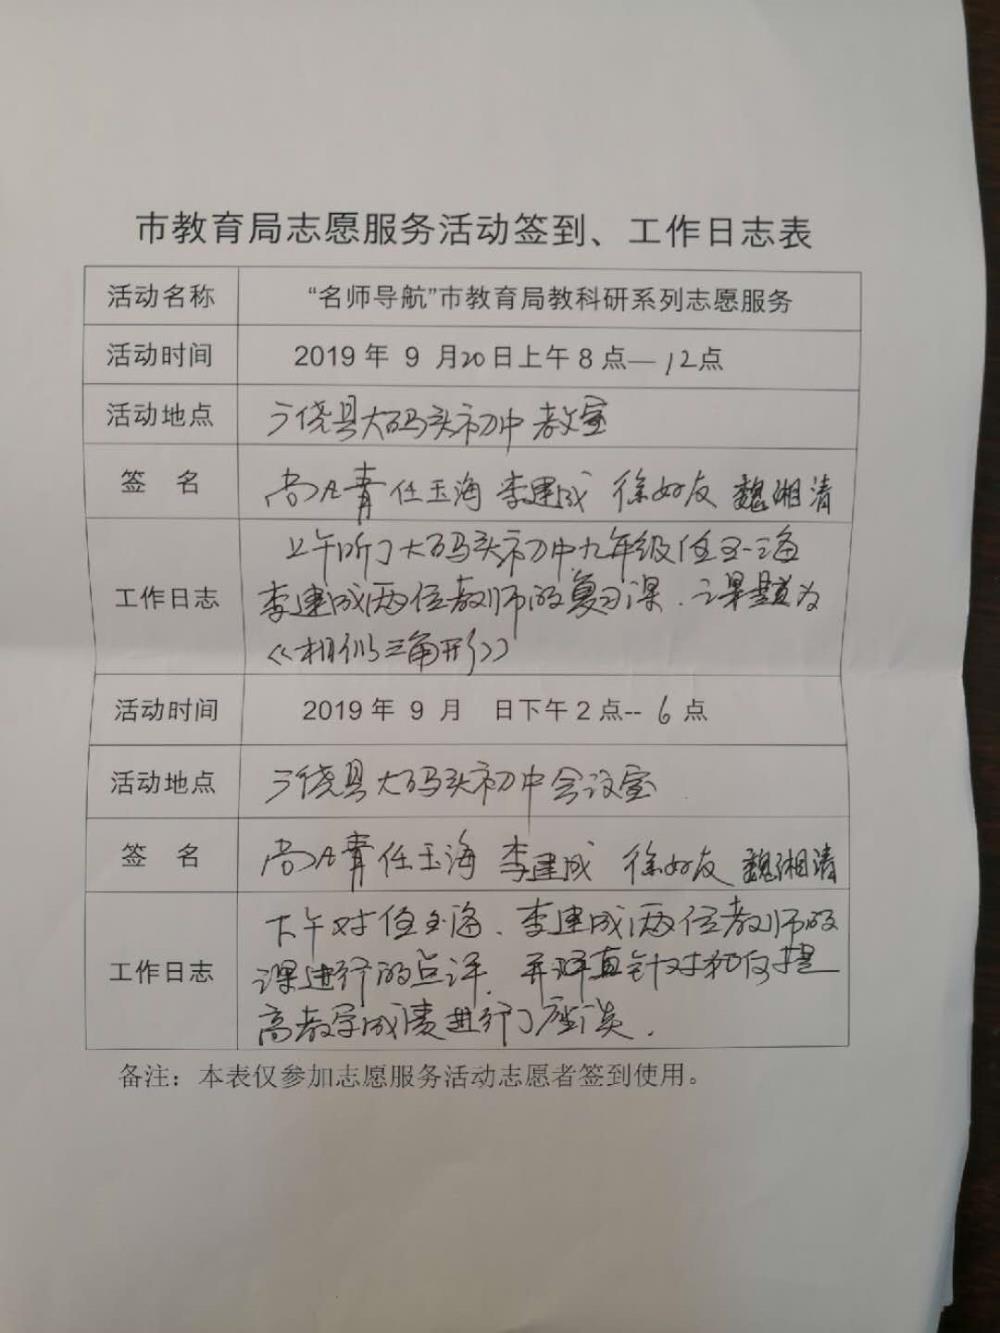 市教育局志愿服务活动签到、工作日志表
活动名称 “名师导航”市教育局教科研系列志愿服务
活动时间 2019 年 9 月20日上午8点—12点
活动地点 广饶县大码头初中教室
签 名 任玉海 李建成 徐好友 魏湘清
工作日志
上午听了大码头初中九年级任玉海
李建成两位教师的复习课．课题为
《相似三角形》
活动时间 2019 年 9 月 日下午2点--6点
活动地点 广饶县大码头初中会议室
签 名 任玉海 李建成 徐好友 魏湘清
工作日志
下午对任玉海、李建成两位教师的
课进行的点评．并针对如何提
高教学成绩进行了座谈．
备注：本表仅参加志愿服务活动志愿者签到使用。